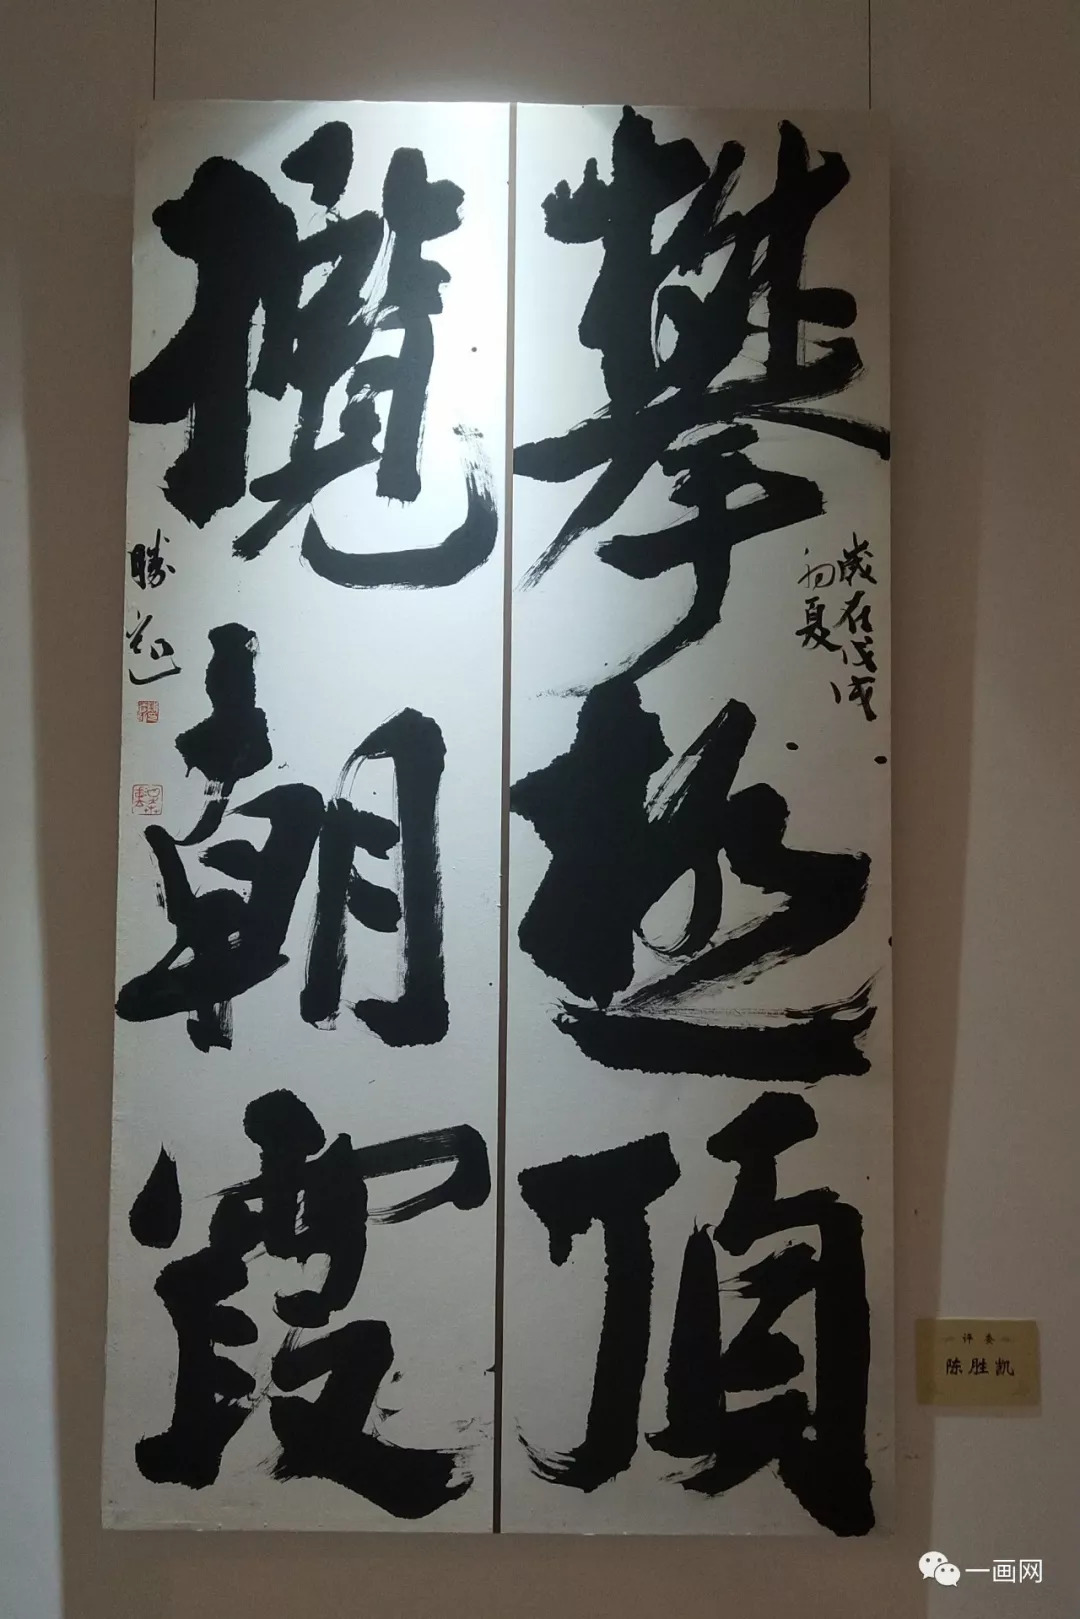 攀极顶
歲在戊戌
初夏
攬朝霞
勝凯
评委
陈胜凯
一画网